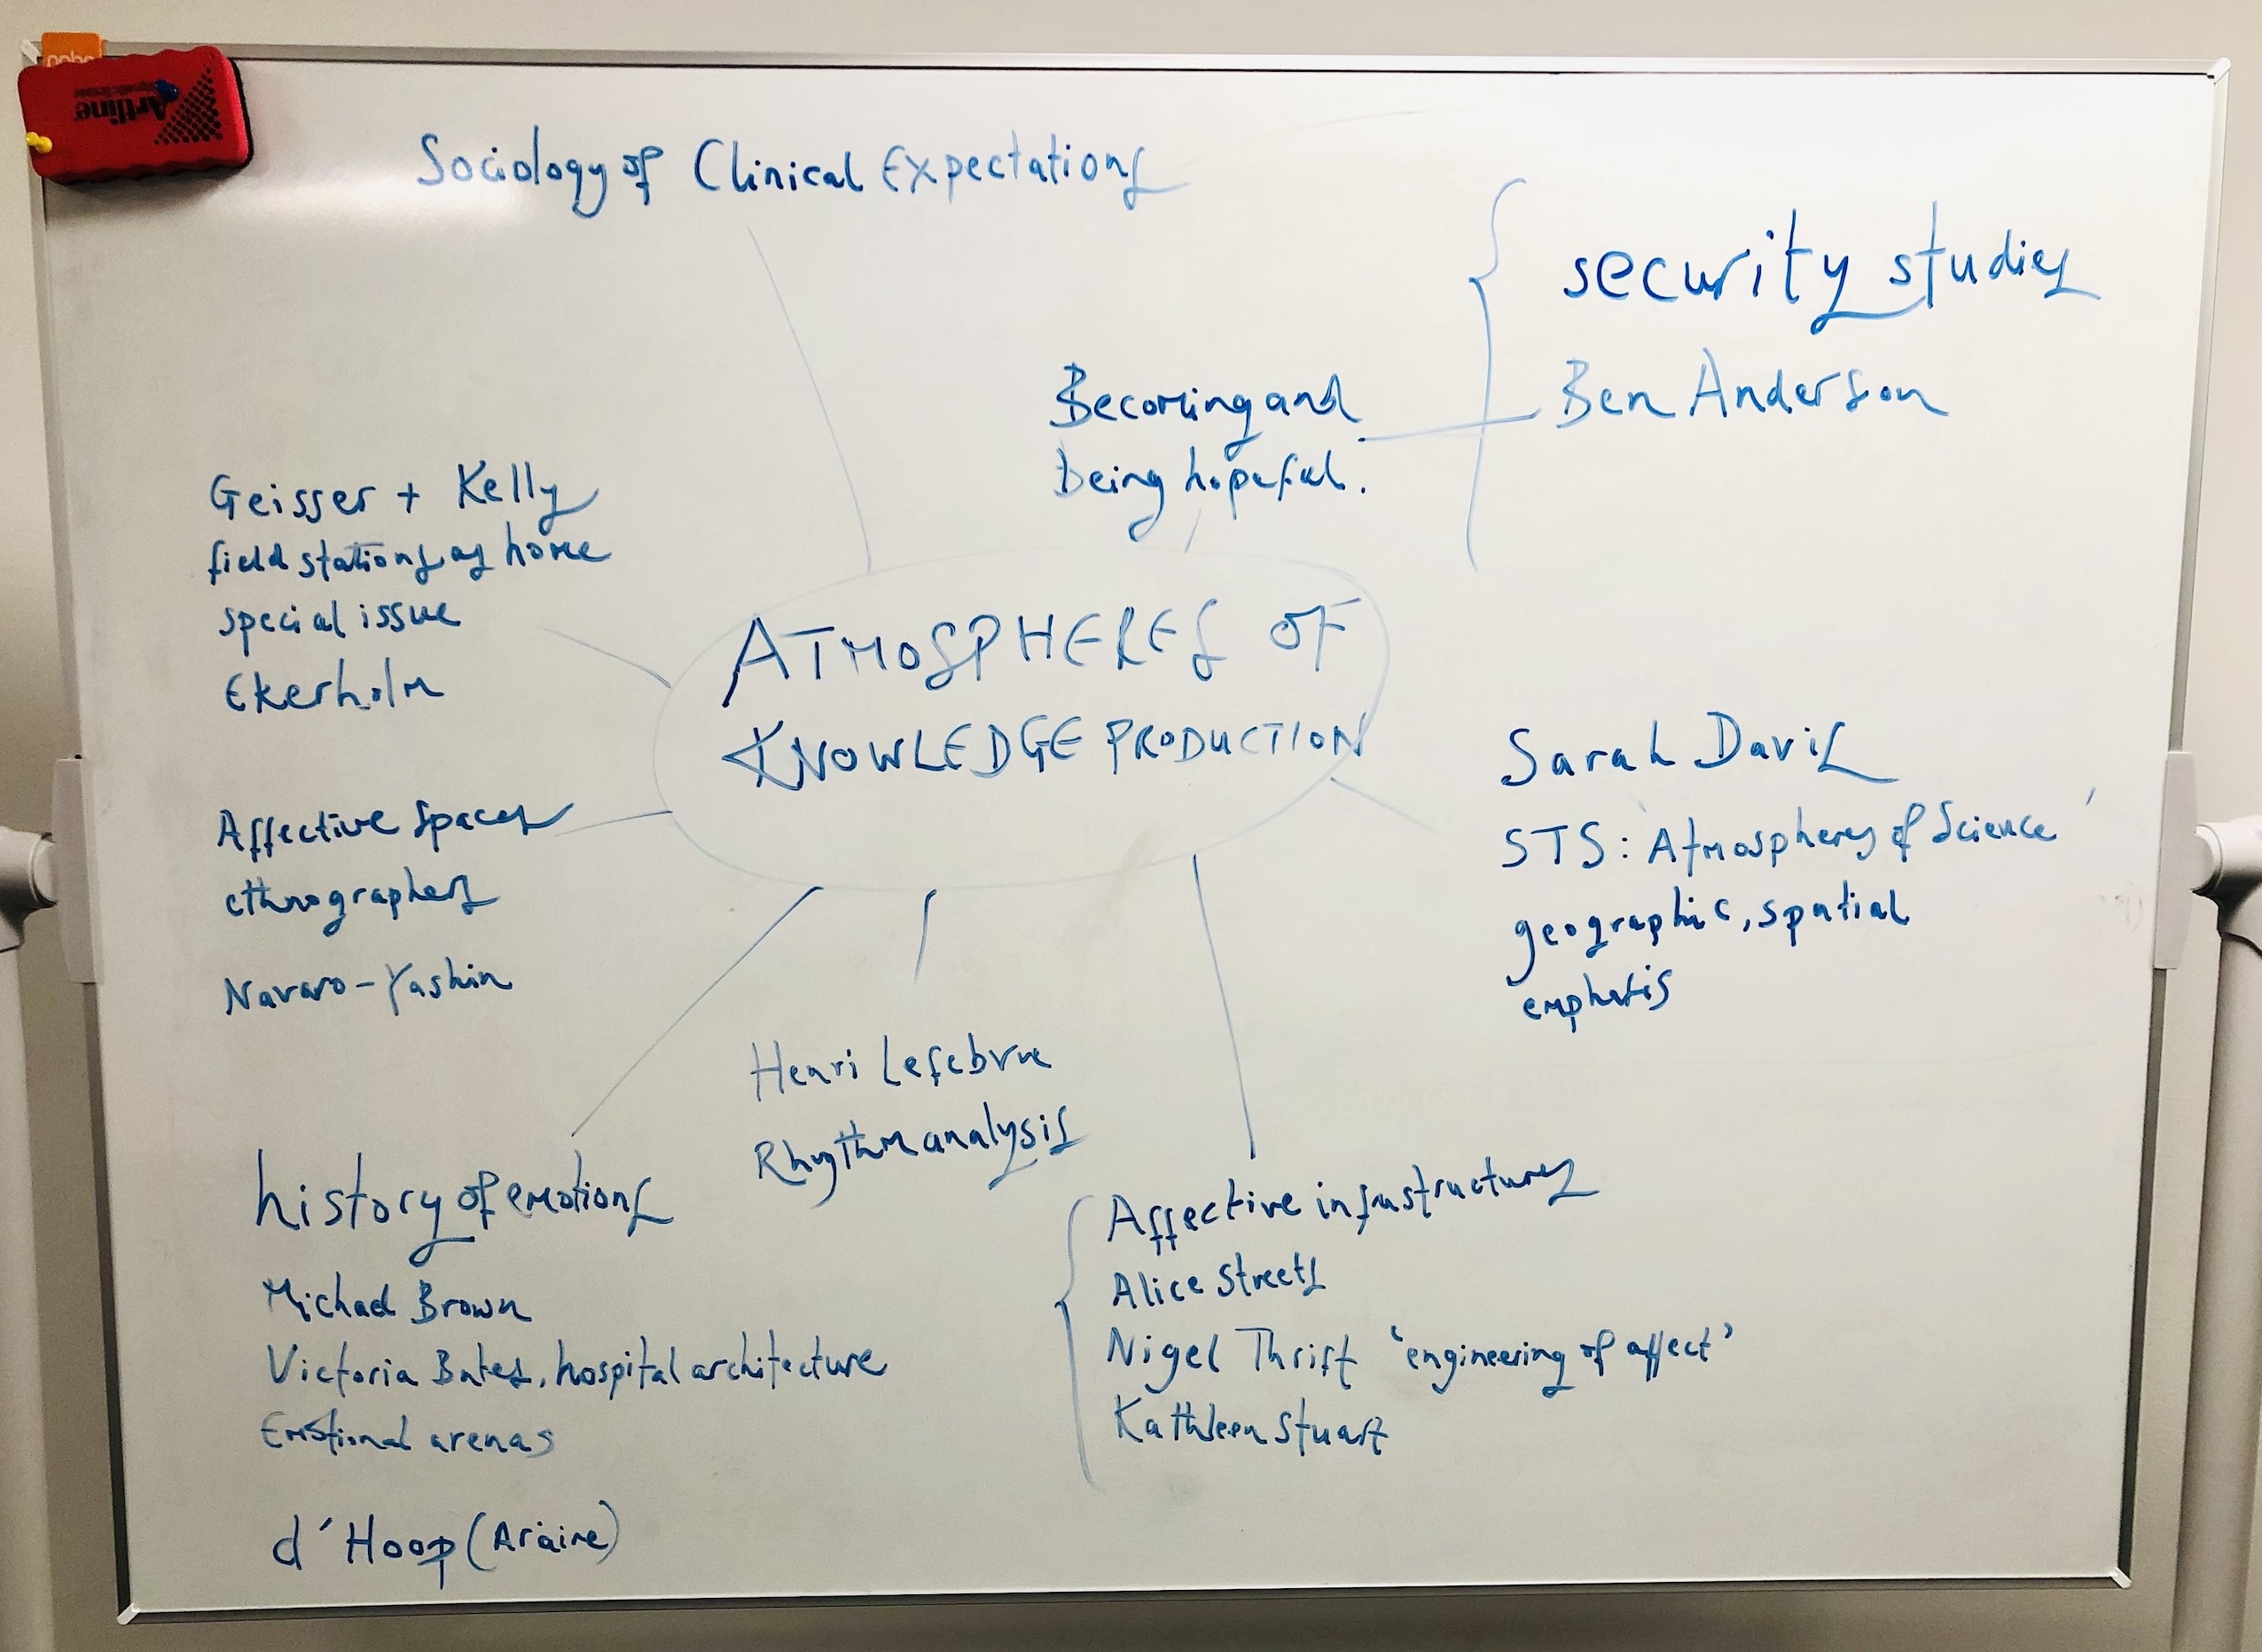 nobo
Artline
Sociology of Clinical Expectations
security studies
Ben Anderson
Becoming and
being hopeful.
Geisser + Kelly
field stations as home
special issue
Ekerholm
ATMOSPHERES OF
KNOWLEDGE PRODUCTION
Sarah Davis
STS: Atmospheres of Science
geographic, spatial
emphasis
Affective Spaces
ethnographers
Navaro-Yashin
Henri Lefebvre
Rhythmanalysis
history of emotions
Michael Brown
Victoria Bates, hospital architecture
Emotional arenas
d'Hoop (Ariaine)
Affective infrastructures
Alice Streets
Nigel Thrift 'engineering of affect'
Kathleen Stuart